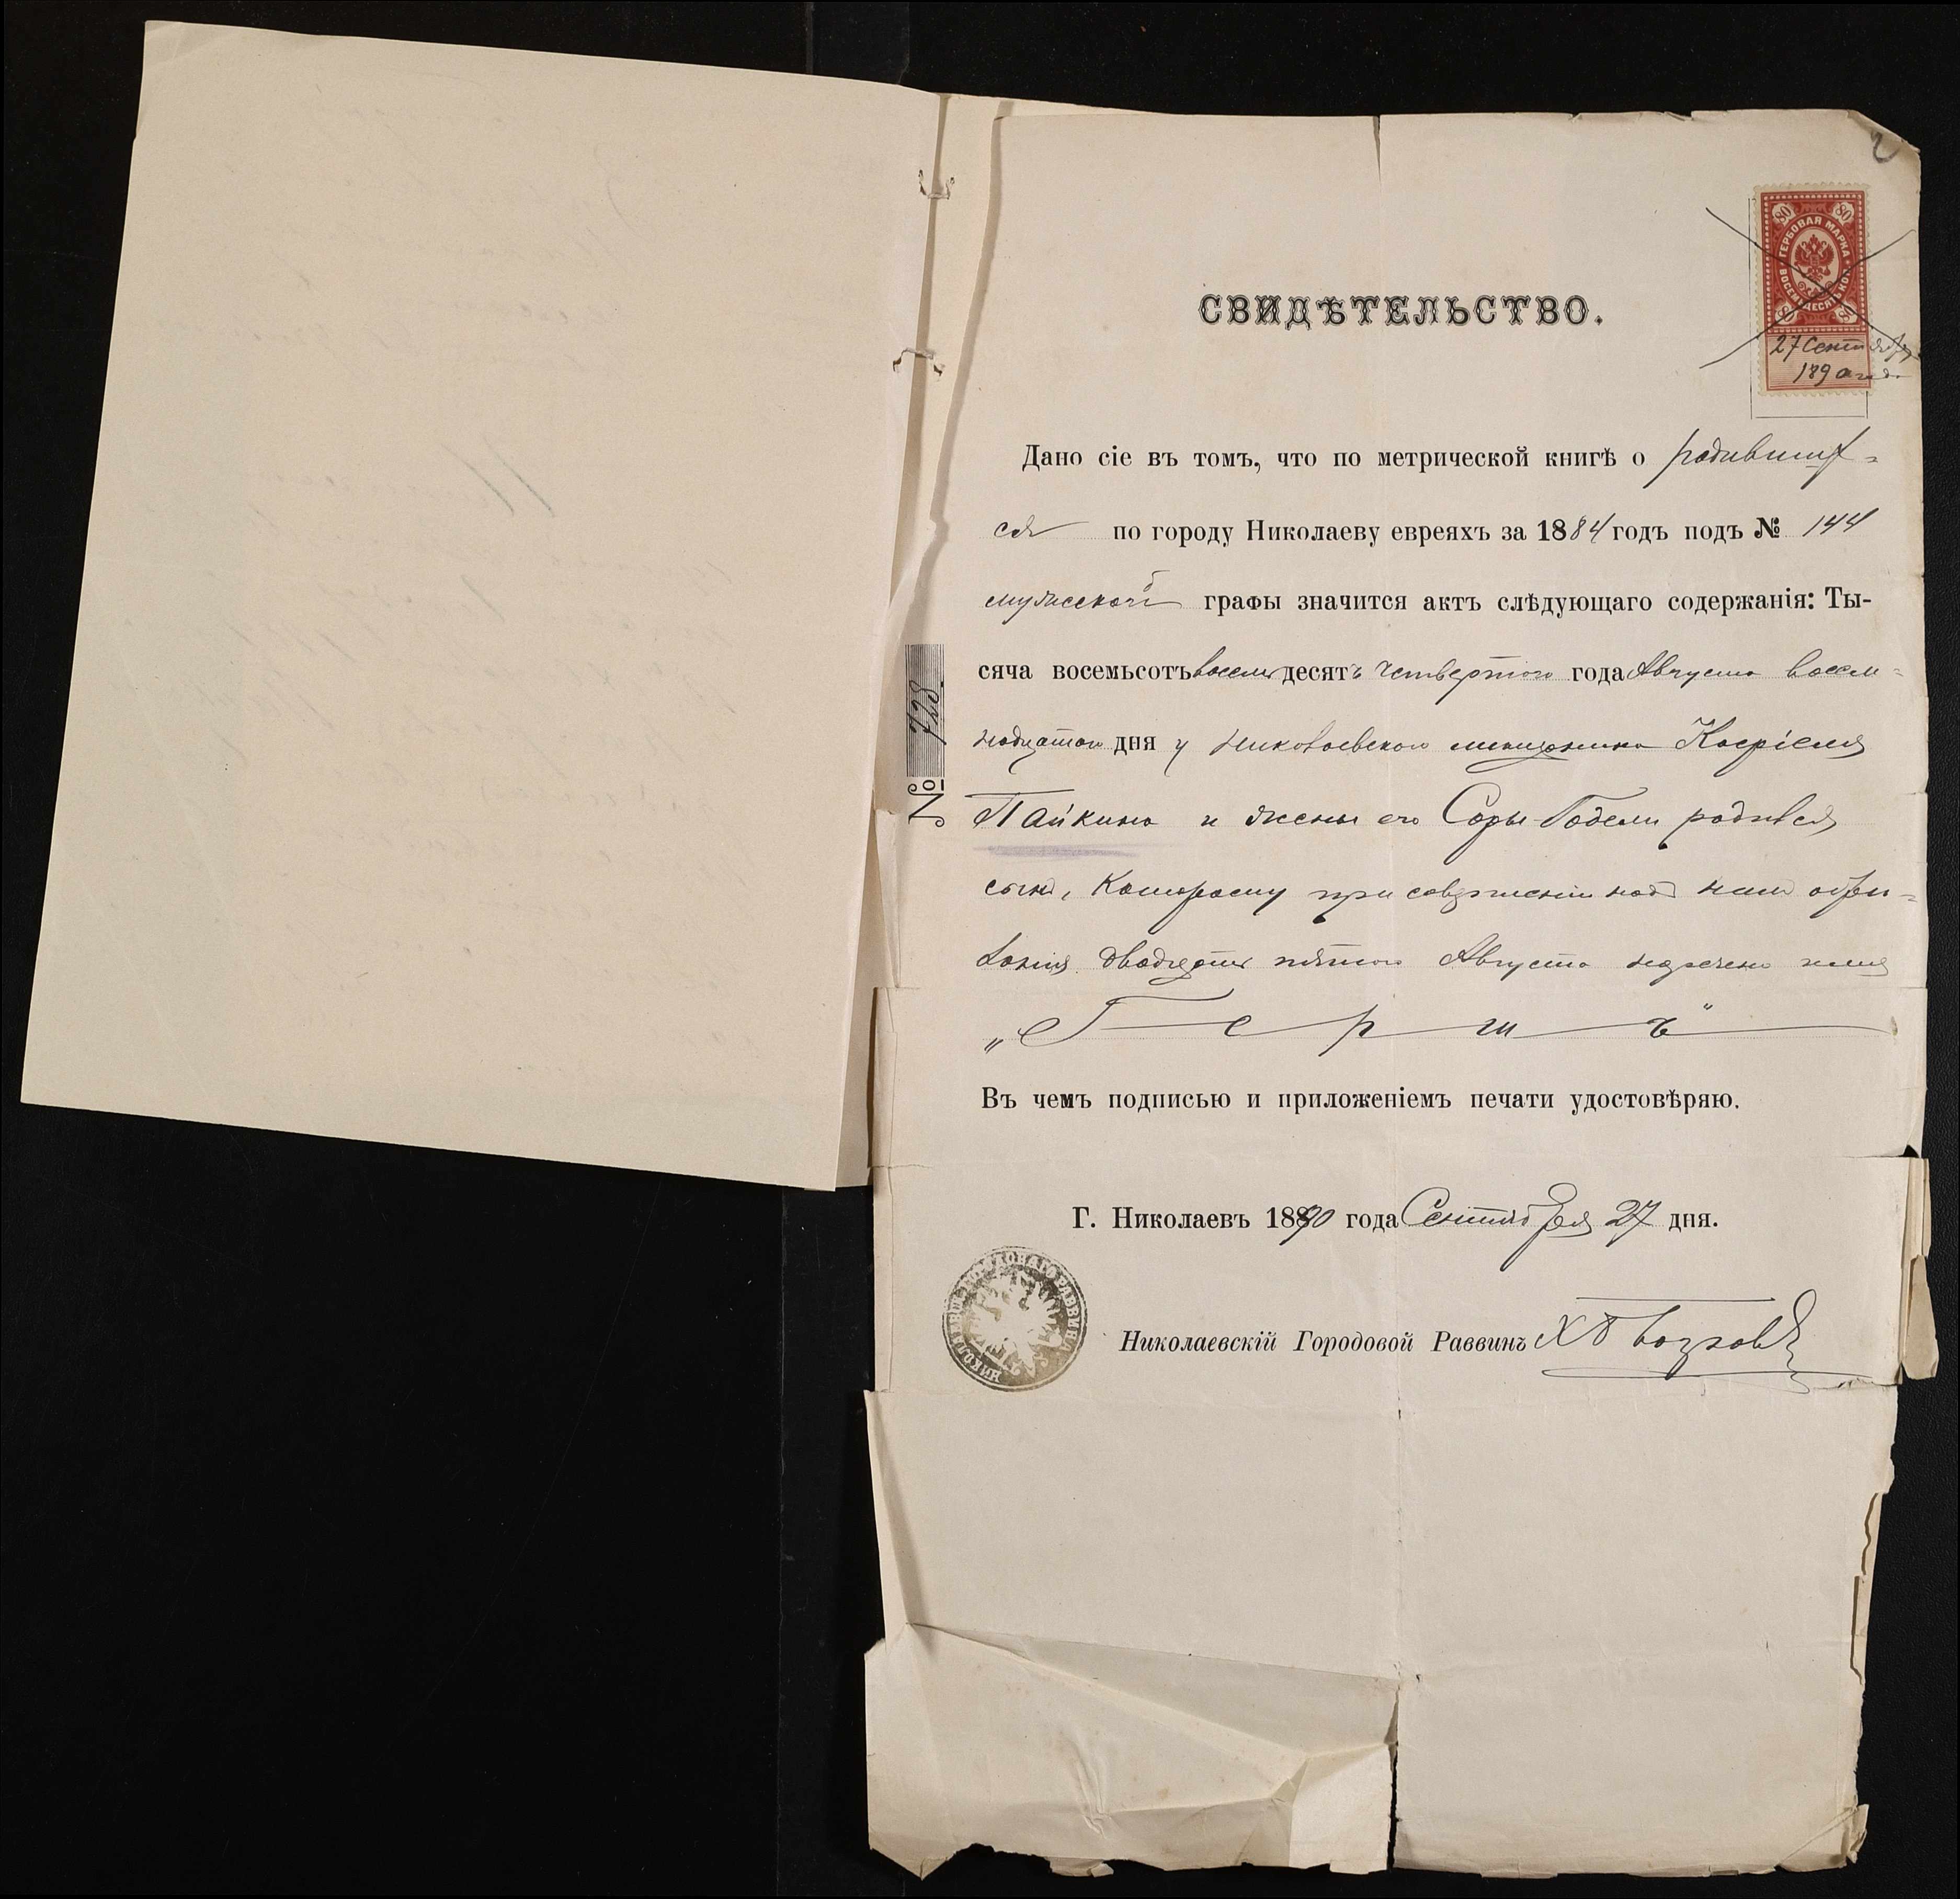 2
80 80
ГЕРБОВАЯ МАРКА
ВОСЕМЬДЕСЯТЪ КОП.
80 80
27 Сентября
1890 года
СВИДѢТЕЛЬСТВО.
Дано сіе въ томъ, что по метрической книгѣ о родивших-
ся по городу Николаеву евреяхъ за 1884 годъ подъ № 144
мужеской графы значится актъ слѣдующаго содержанія: Ты-
сяча восемьсотъ восемьдесятъ четвертого года Августа восем-
надцатого дня у Николаевского мещанина Касріеля
Пайкина и жены его Соры-Годели родился
сынъ, которому при совершеніи надъ нимъ обрѣ-
занія двадцать пятого Августа наречено имя
„Гершъ"
Въ чемъ подписью и приложеніемъ печати удостовѣряю.
Г. Николаевъ 1890 года Сентября 27 дня.
Николаевскій Городовой Раввинъ
НИКОЛАЕВС. ГОРОДОВАГО РАВВИНА
№ 728